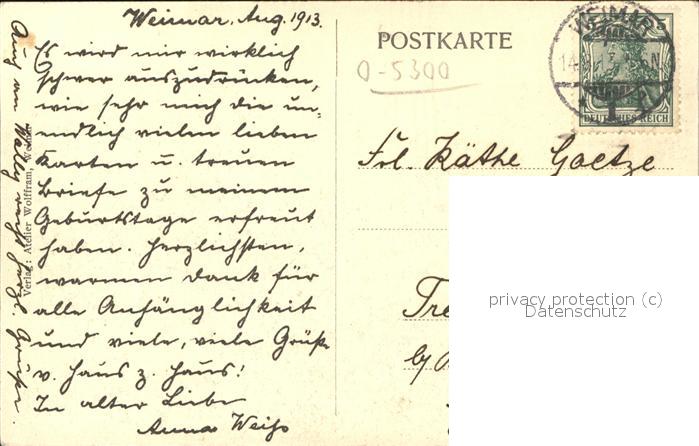 Weimar, Aug. 1913.
Es wird mir wirklich
schwer auszudrücken,
wie sehr mich die un-
endlich vielen lieben
Karten u. treuen
Briefe zu meinem
Geburtstage erfreut
haben. Herzlichsten,
warmen Dank für
alle Anhänglichkeit
und viele, viele Grüße
v. Haus z. Haus!
In alter Liebe
Anna Weiß
Auch an Wally recht herzl. Grüße.
Verlag: Atelier Wolffram,
POSTKARTE
0-5300
WEIMAR
5
DEUTSCHES REICH
Frl. Käthe Goetze
Tre
b/
privacy protection (c)
Datenschutz